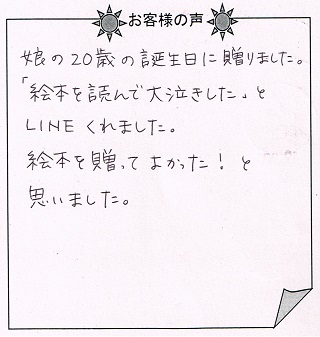 お客様の声
娘の20歳の誕生日に贈りました。
「絵本を読んで大泣きした」と
LINEくれました。
絵本を贈ってよかった！と
思いました。